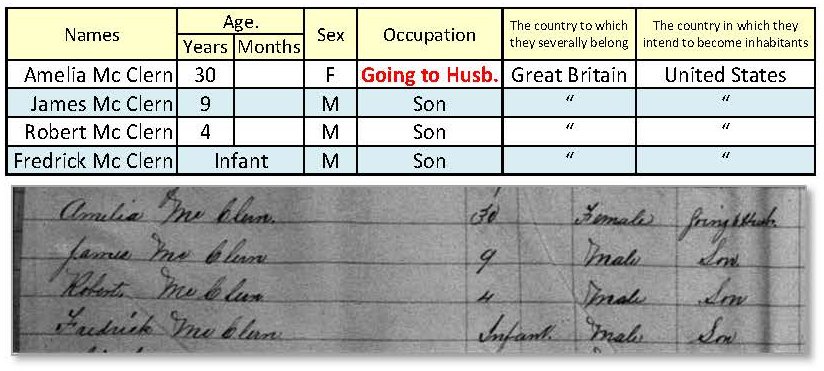 Names Age. Sex Occupation The country to which they severally belong The country in which they intend to become inhabitants
Years Months
Amelia Mc Clern 30 F Going to Husb. Great Britain United States
James Mc Clern 9 M Son “ “
Robert Mc Clern 4 M Son “ “
Fredrick Mc Clern Infant M Son “ “
Amelia Mc Clern. 30 Female Going to Husb.
James Mc Clern 9 Male Son
Robert Mc Clern 4 Male Son
Fredrick Mc Clern Infant. Male Son